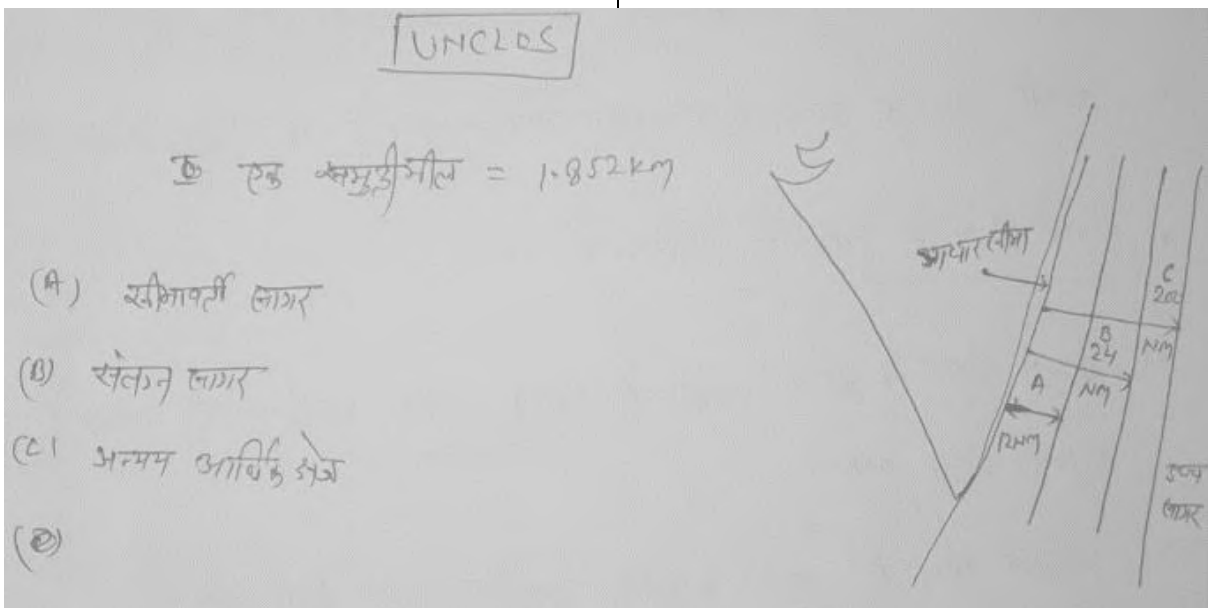 UNCLOS
एक समुद्रीमील = 1.852 KM
(A) सीमावर्ती सागर
(B) संलग्न सागर
(C) अनन्य आर्थिक क्षेत्र
आधार सीमा
A
12NM
B
24
NM
C
NM
उच्च
सागर